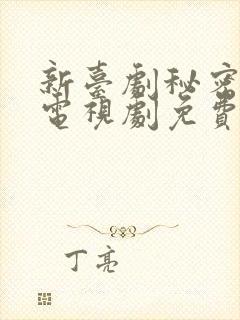 新臺劇秘密
電視劇免費
丁亮